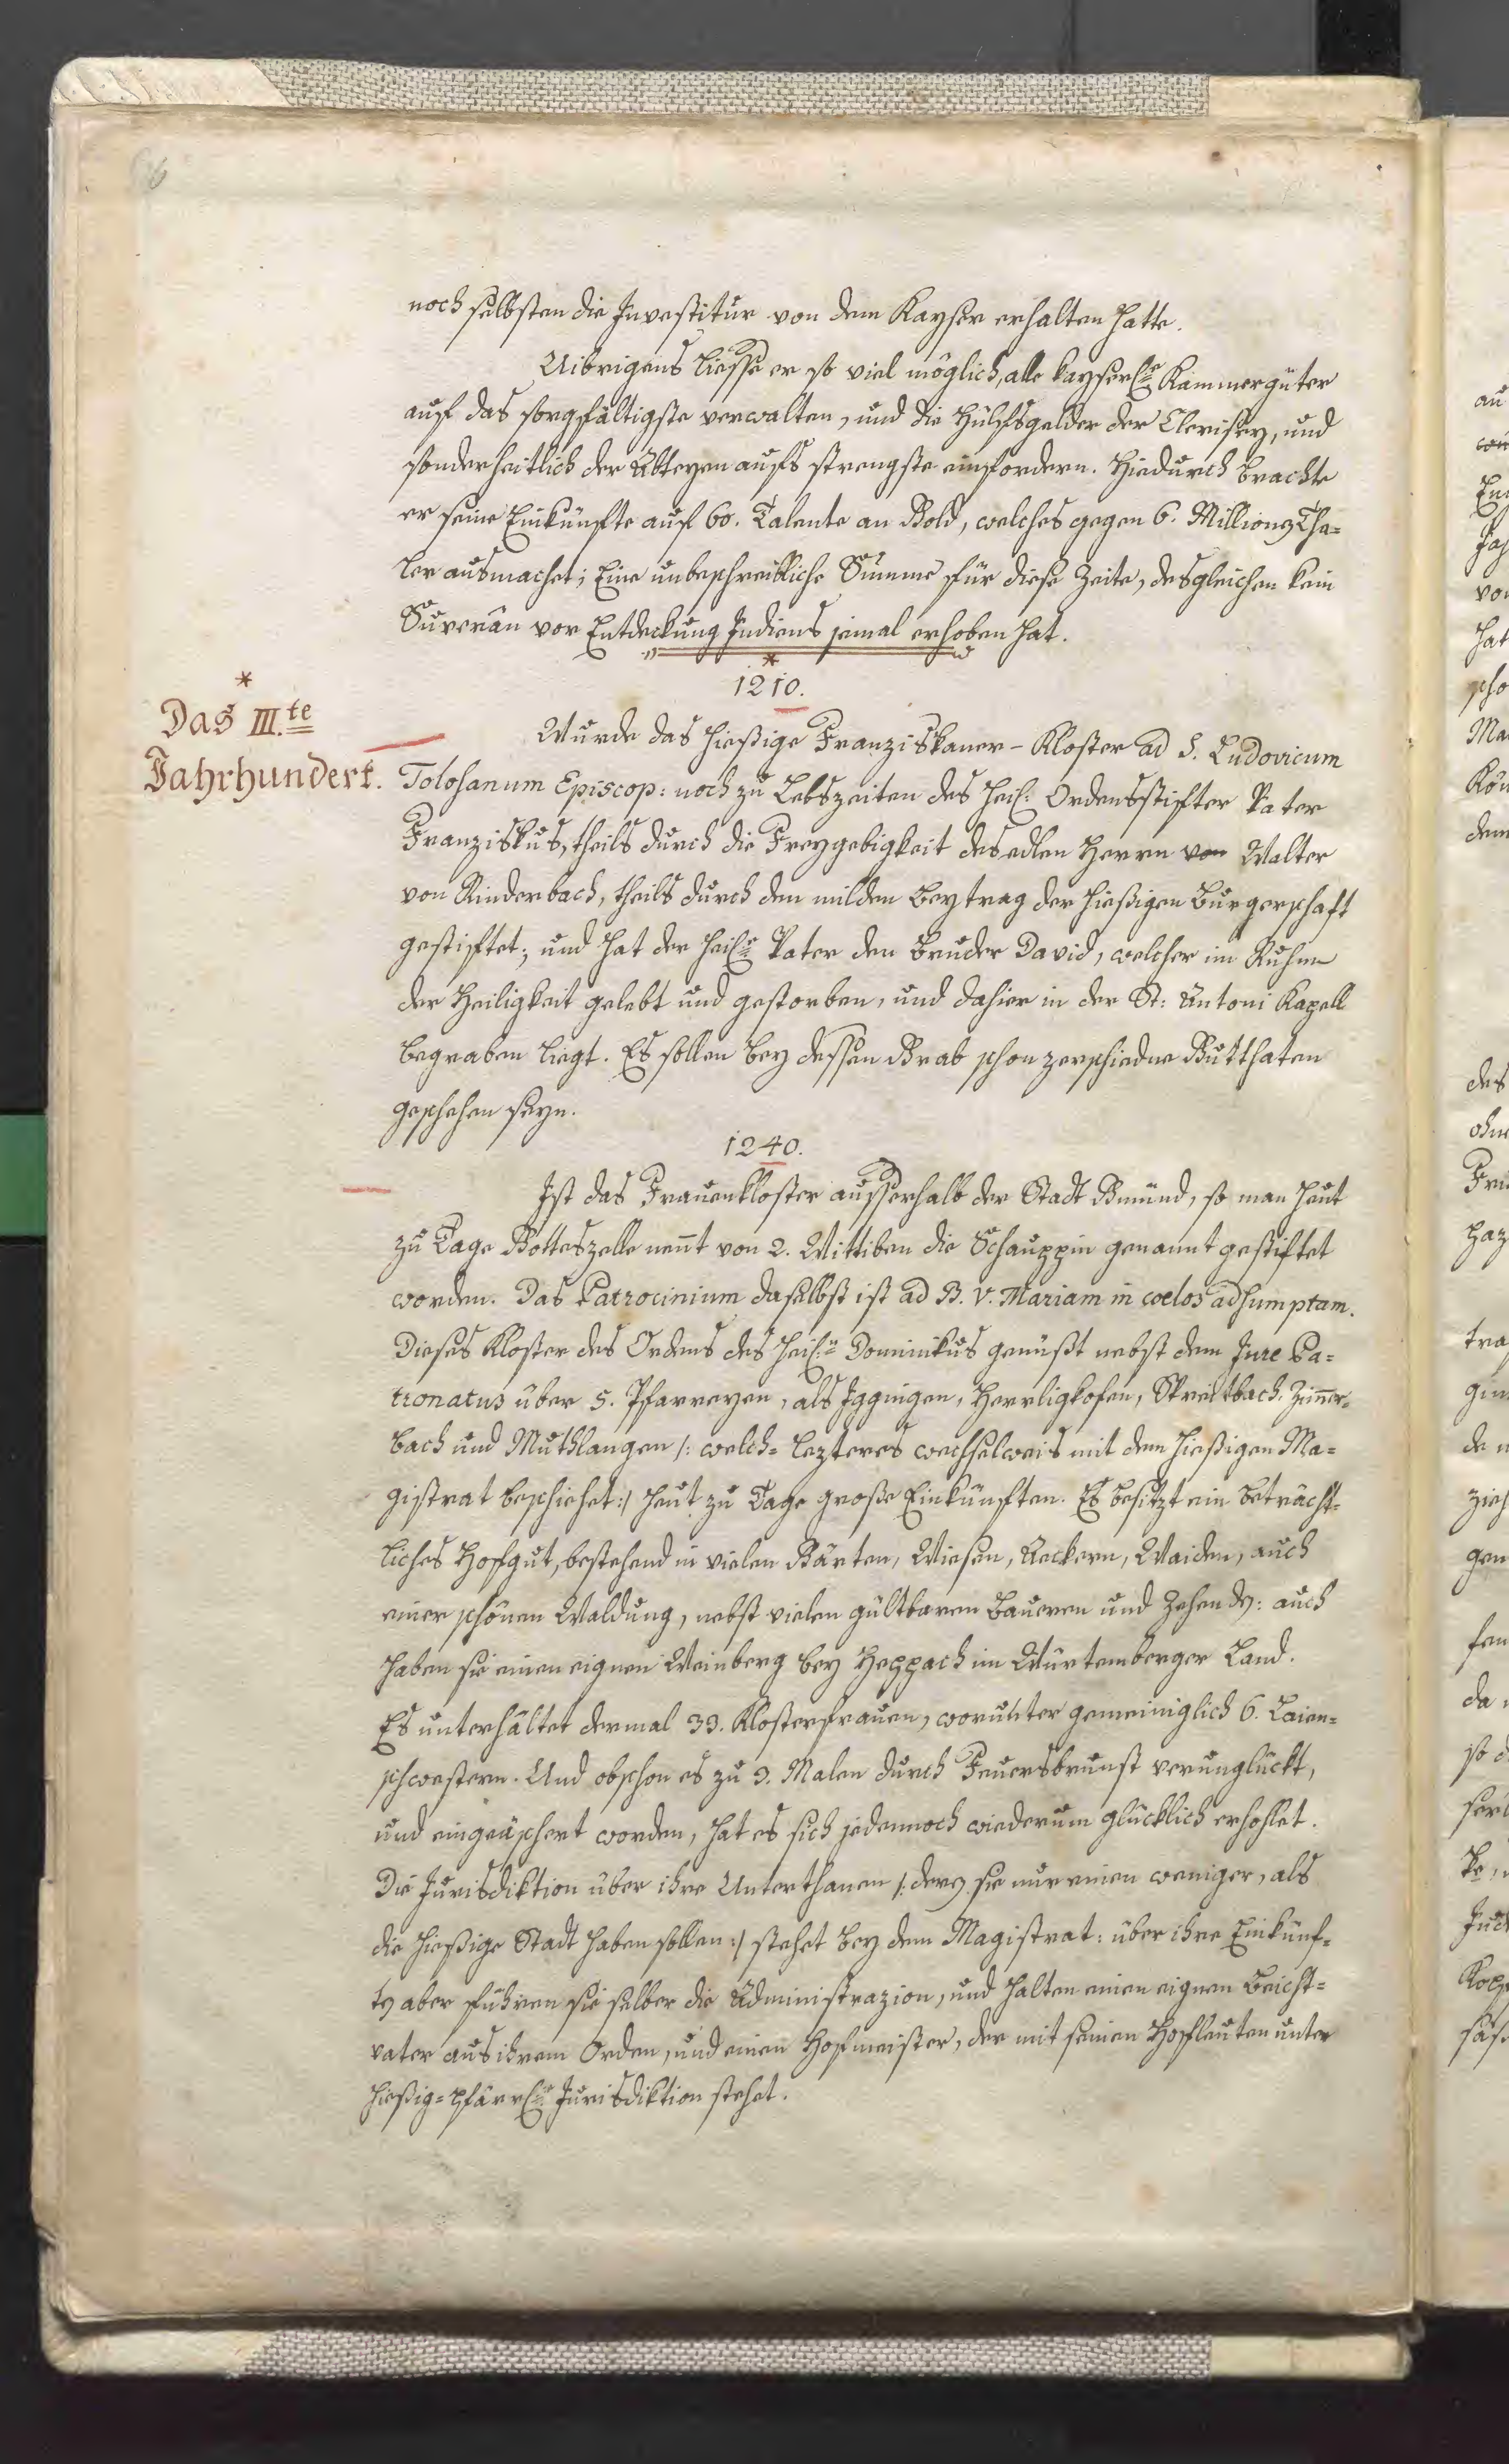 6
noch selbsten die Investitur von dem Kayser erhalten hatte.
Uibrigens liesse er so viel möglich, alle kayserl.e Kammergüter
auf das sorgfältigste verwalten, und die Hülfsgelder der Clerisey, und
sonderheitlich der Abteyen aufs strengste einfordern. Hiedurch brachte
er seine Einkünfte auf 60. Talente an Gold, welches gegen 6. Millionen Tha=
ler ausmachet; Eine unbeschreibliche Summe für diese Zeite, desgleichen kein
Suverän vor Entdeckung Indiens jemal erhoben hat.
*
1210.
*
Das III.te
Jahrhundert.
Wurde das hießige Franziskaner-Kloster ad S. Ludovicum
Tolosanum Episcop: noch zu Lebszeiten des heil: Ordensstifter Pater
Franziskus, theils durch die Freygebigkeit des edlen Herrn von Walter
von Rinderbach, theils durch den milden Beytrag der hießigen Burgerschaft
gestiftet; und hat der heil.e Pater den Bruder David, welcher im Ruhm
der Heiligkeit gelebt und gestorben, und dahier in der St: Antoni Kapell
begraben liegt. Es sollen bey dessen Grab schon zerschiedne Gutthaten
geschehen seyn.
1240.
Ist das Frauenkloster ausserhalb der Stadt Gmünd, so man heut
zu Tage Gotteszelle nennt von 2. Wittiben die Schauppin genannt gestiftet
worden. Das Patrocinium daselbst ist ad B. V. Mariam in coelos adsumptam.
Dieses Kloster des Ordens des heil.n Dominikus genüßt nebst dem Jure Pa=
tronatus über 5. Pfarreyen, als Iggingen, Herrligkofen, Spreitbach, Zimmer=
bach und Muthlangen /: welch= lezteres wechselweis mit dem hießigen Ma=
gistrat beschiehet :/ heut zu Tage große Einkünften. Es besitzt ein beträcht=
liches Hofgut, bestehend in vielen Gärten, Wiesen, Aeckern, Waiden, auch
einer schönen Waldung, nebst vielen gültbaren Bauern und Zehenden: auch
haben sie einen eignen Weinberg bey Heppach im Würtemberger Land.
Es unterhältet dermal 33. Klosterfrauen, worunter gemeiniglich 6. Laien=
schwestern. Und obschon es zu 3. Malen durch Feuersbrunst verunglückt,
und eingeäschert worden, hat es sich jedennoch wiederum glücklich erhohlet.
Die Jurisdiktion über ihre Unterthanen /: deren sie nur einen weniger, als
die hießige Stadt haben sollen :/ stehet bey dem Magistrat: über ihre Einkünf=
ten aber führen sie selber die Administrazion, und halten einen eignen Beicht=
vater aus ihrem Orden, und einen Hofmeister, der mit seinen Hofleuten unter
hießig= pfärrl.r Jurisdiktion stehet.